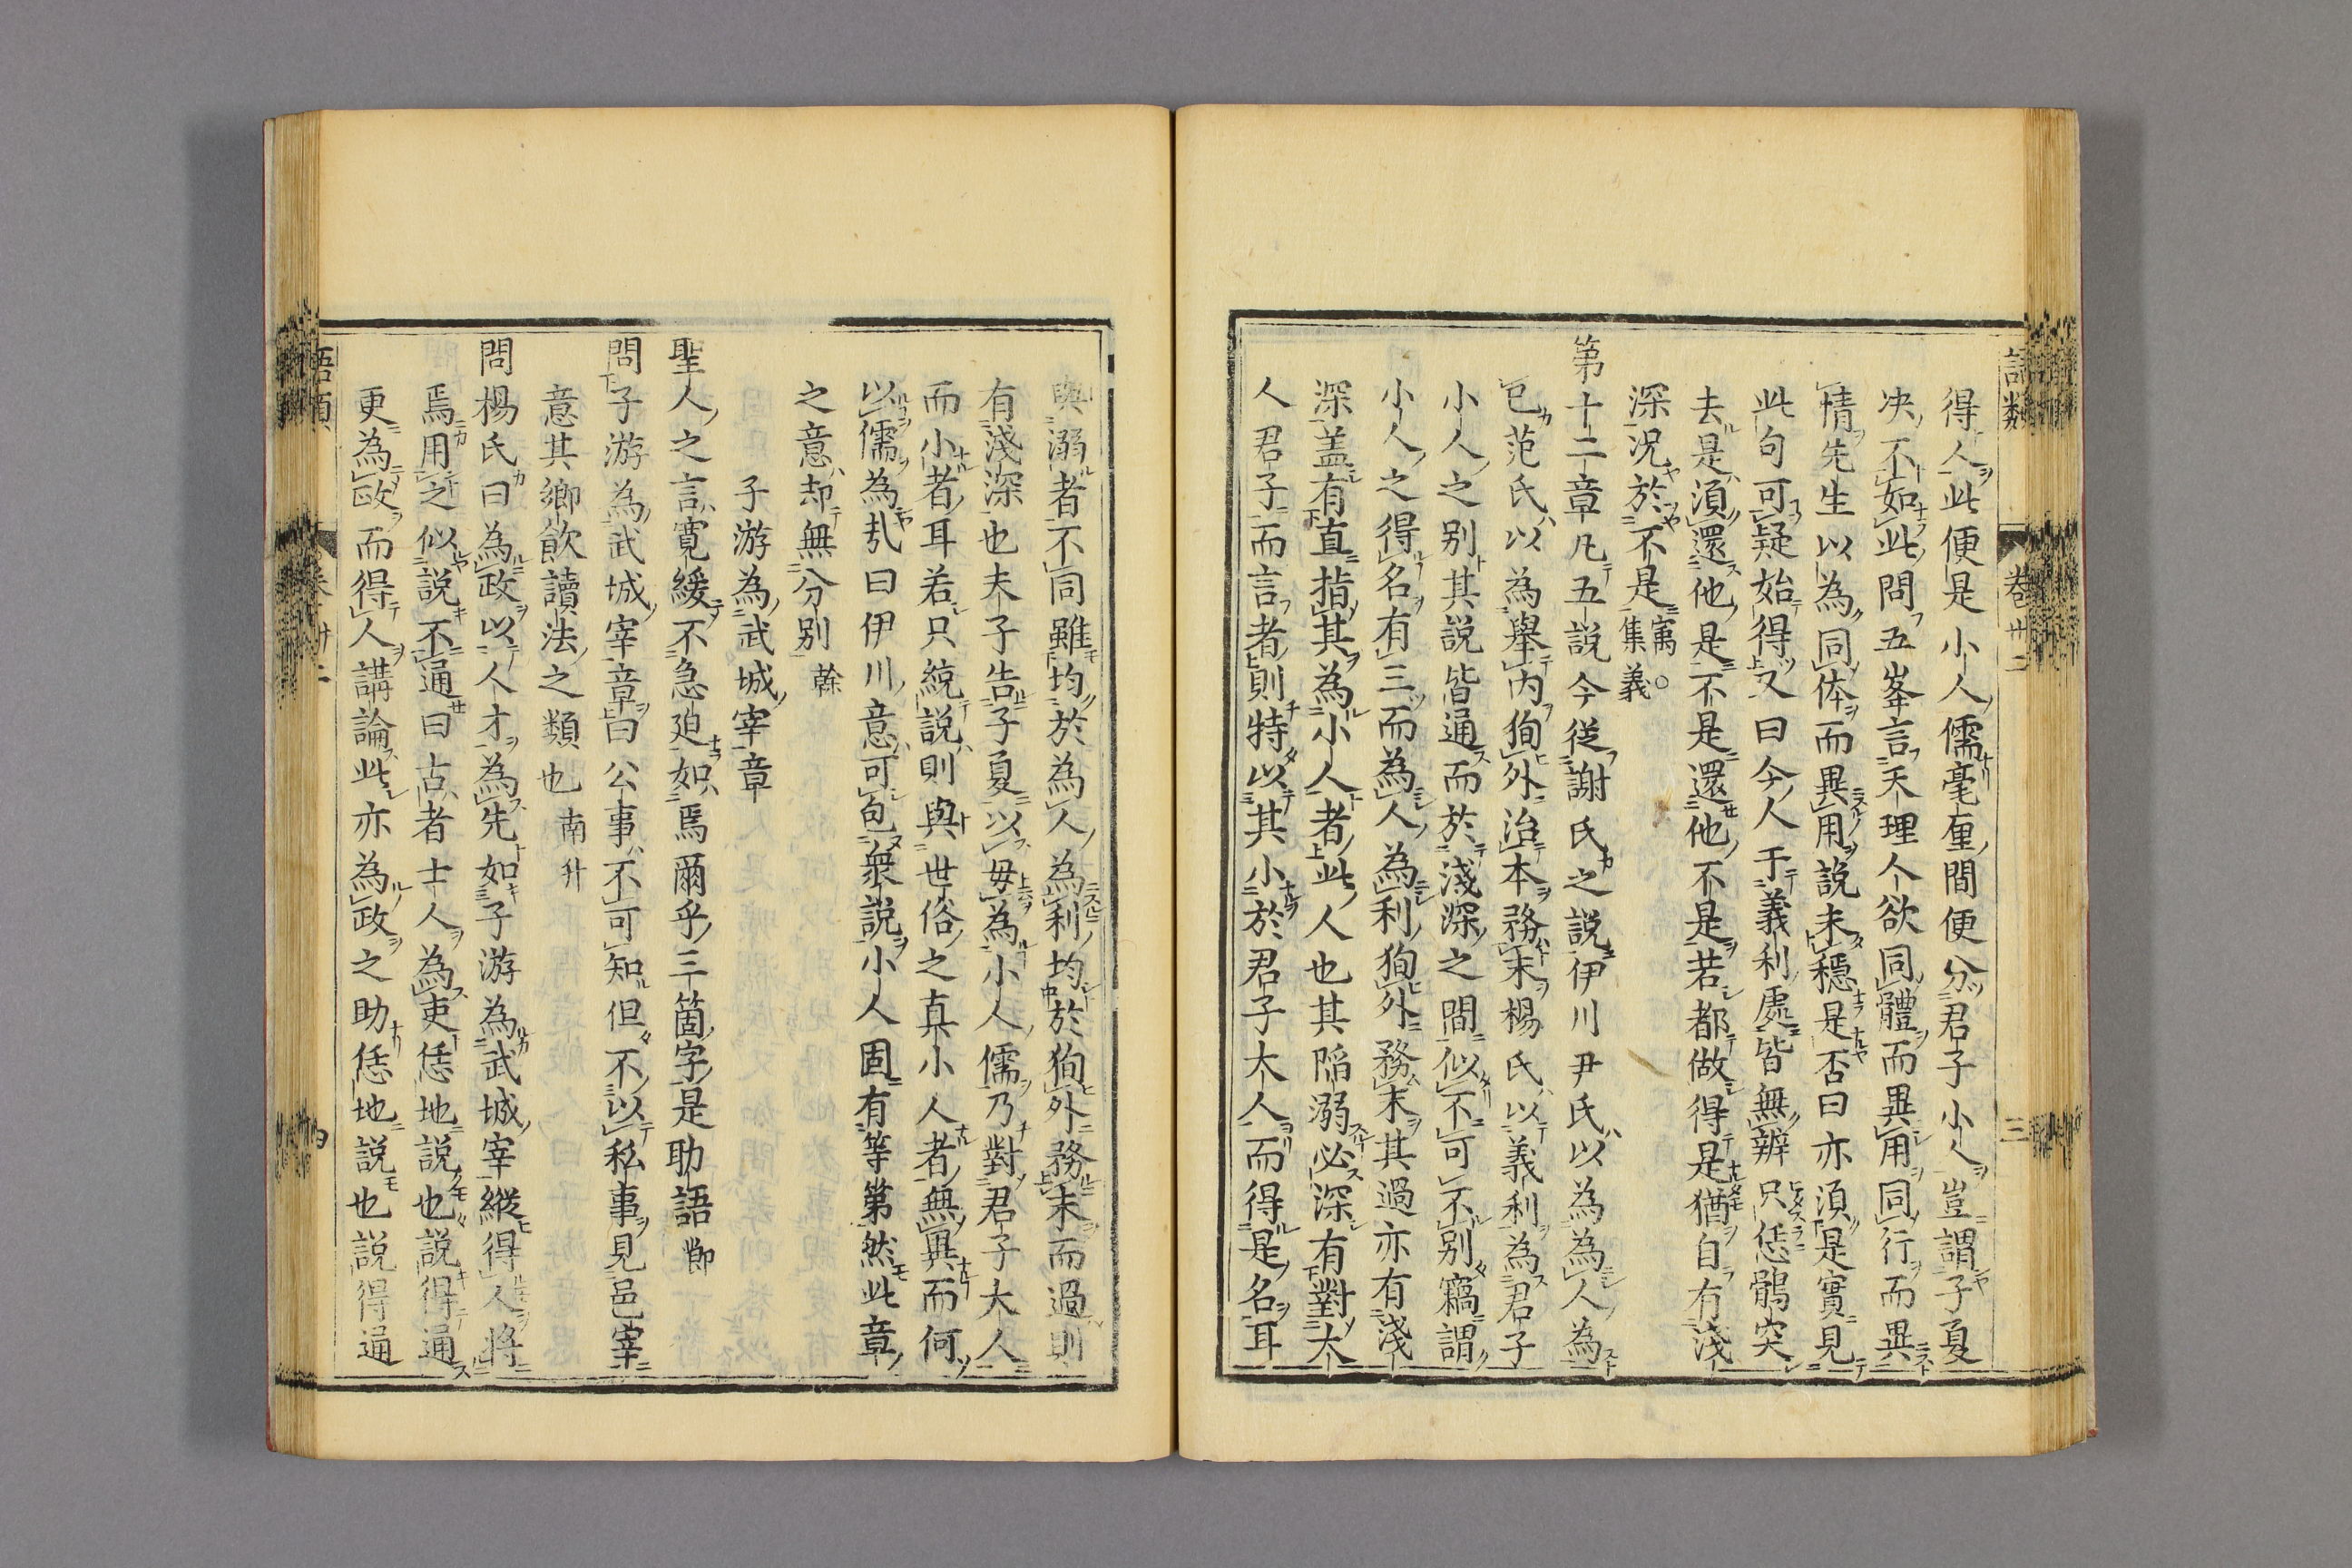 語類 卷卅二 三
得人此便是小人儒毫厘間便分君子小人豈謂子夏
決不如此問五峯言天理人欲同體而異用同行而異
情先生以為同体而異用說未穩是否曰亦須是實見
此句可疑始得又曰今人于義利處皆無辨只恁鶻突
去是須還他是不是還他不是若都做得是猶自有淺
深况於不是㝢○集義
第十二章凡五說今從謝氏之說伊川尹氏以為為人為
已范氏以為舉內狥外治本務末楊氏以義利為君子
小人之別其說皆通而於淺深之間似不可不別竊謂
小人之得名有三而為人為利狥外務末其過亦有淺
深盖有直指其為小人者此人也其陷溺必深有對大
人君子而言者則特以其小於君子大人而得是名耳
與溺者不同雖均於為人為利均於狥外務末而過則
有淺深也夫子告子夏以毋為小人儒乃對君子大人
而小者耳若只統說則與世俗之真小人者無異而何
以儒為㢤曰伊川意可包衆說小人固有等第然此章
之意却無分別榦
子游為武城宰章
聖人之言寛緩不急迫如焉爾乎三箇字是助語節
問子游為武城宰章曰公事不可知但不以私事見邑宰
意其鄉飲讀法之類也南升
問楊氏曰為政以人才為先如子游為武城宰縱得人將
焉用之似說不通曰古者士人為吏恁地說也說得通
更為政而得人講論此亦為政之助恁地說也說得通
語類 卷卅二 四